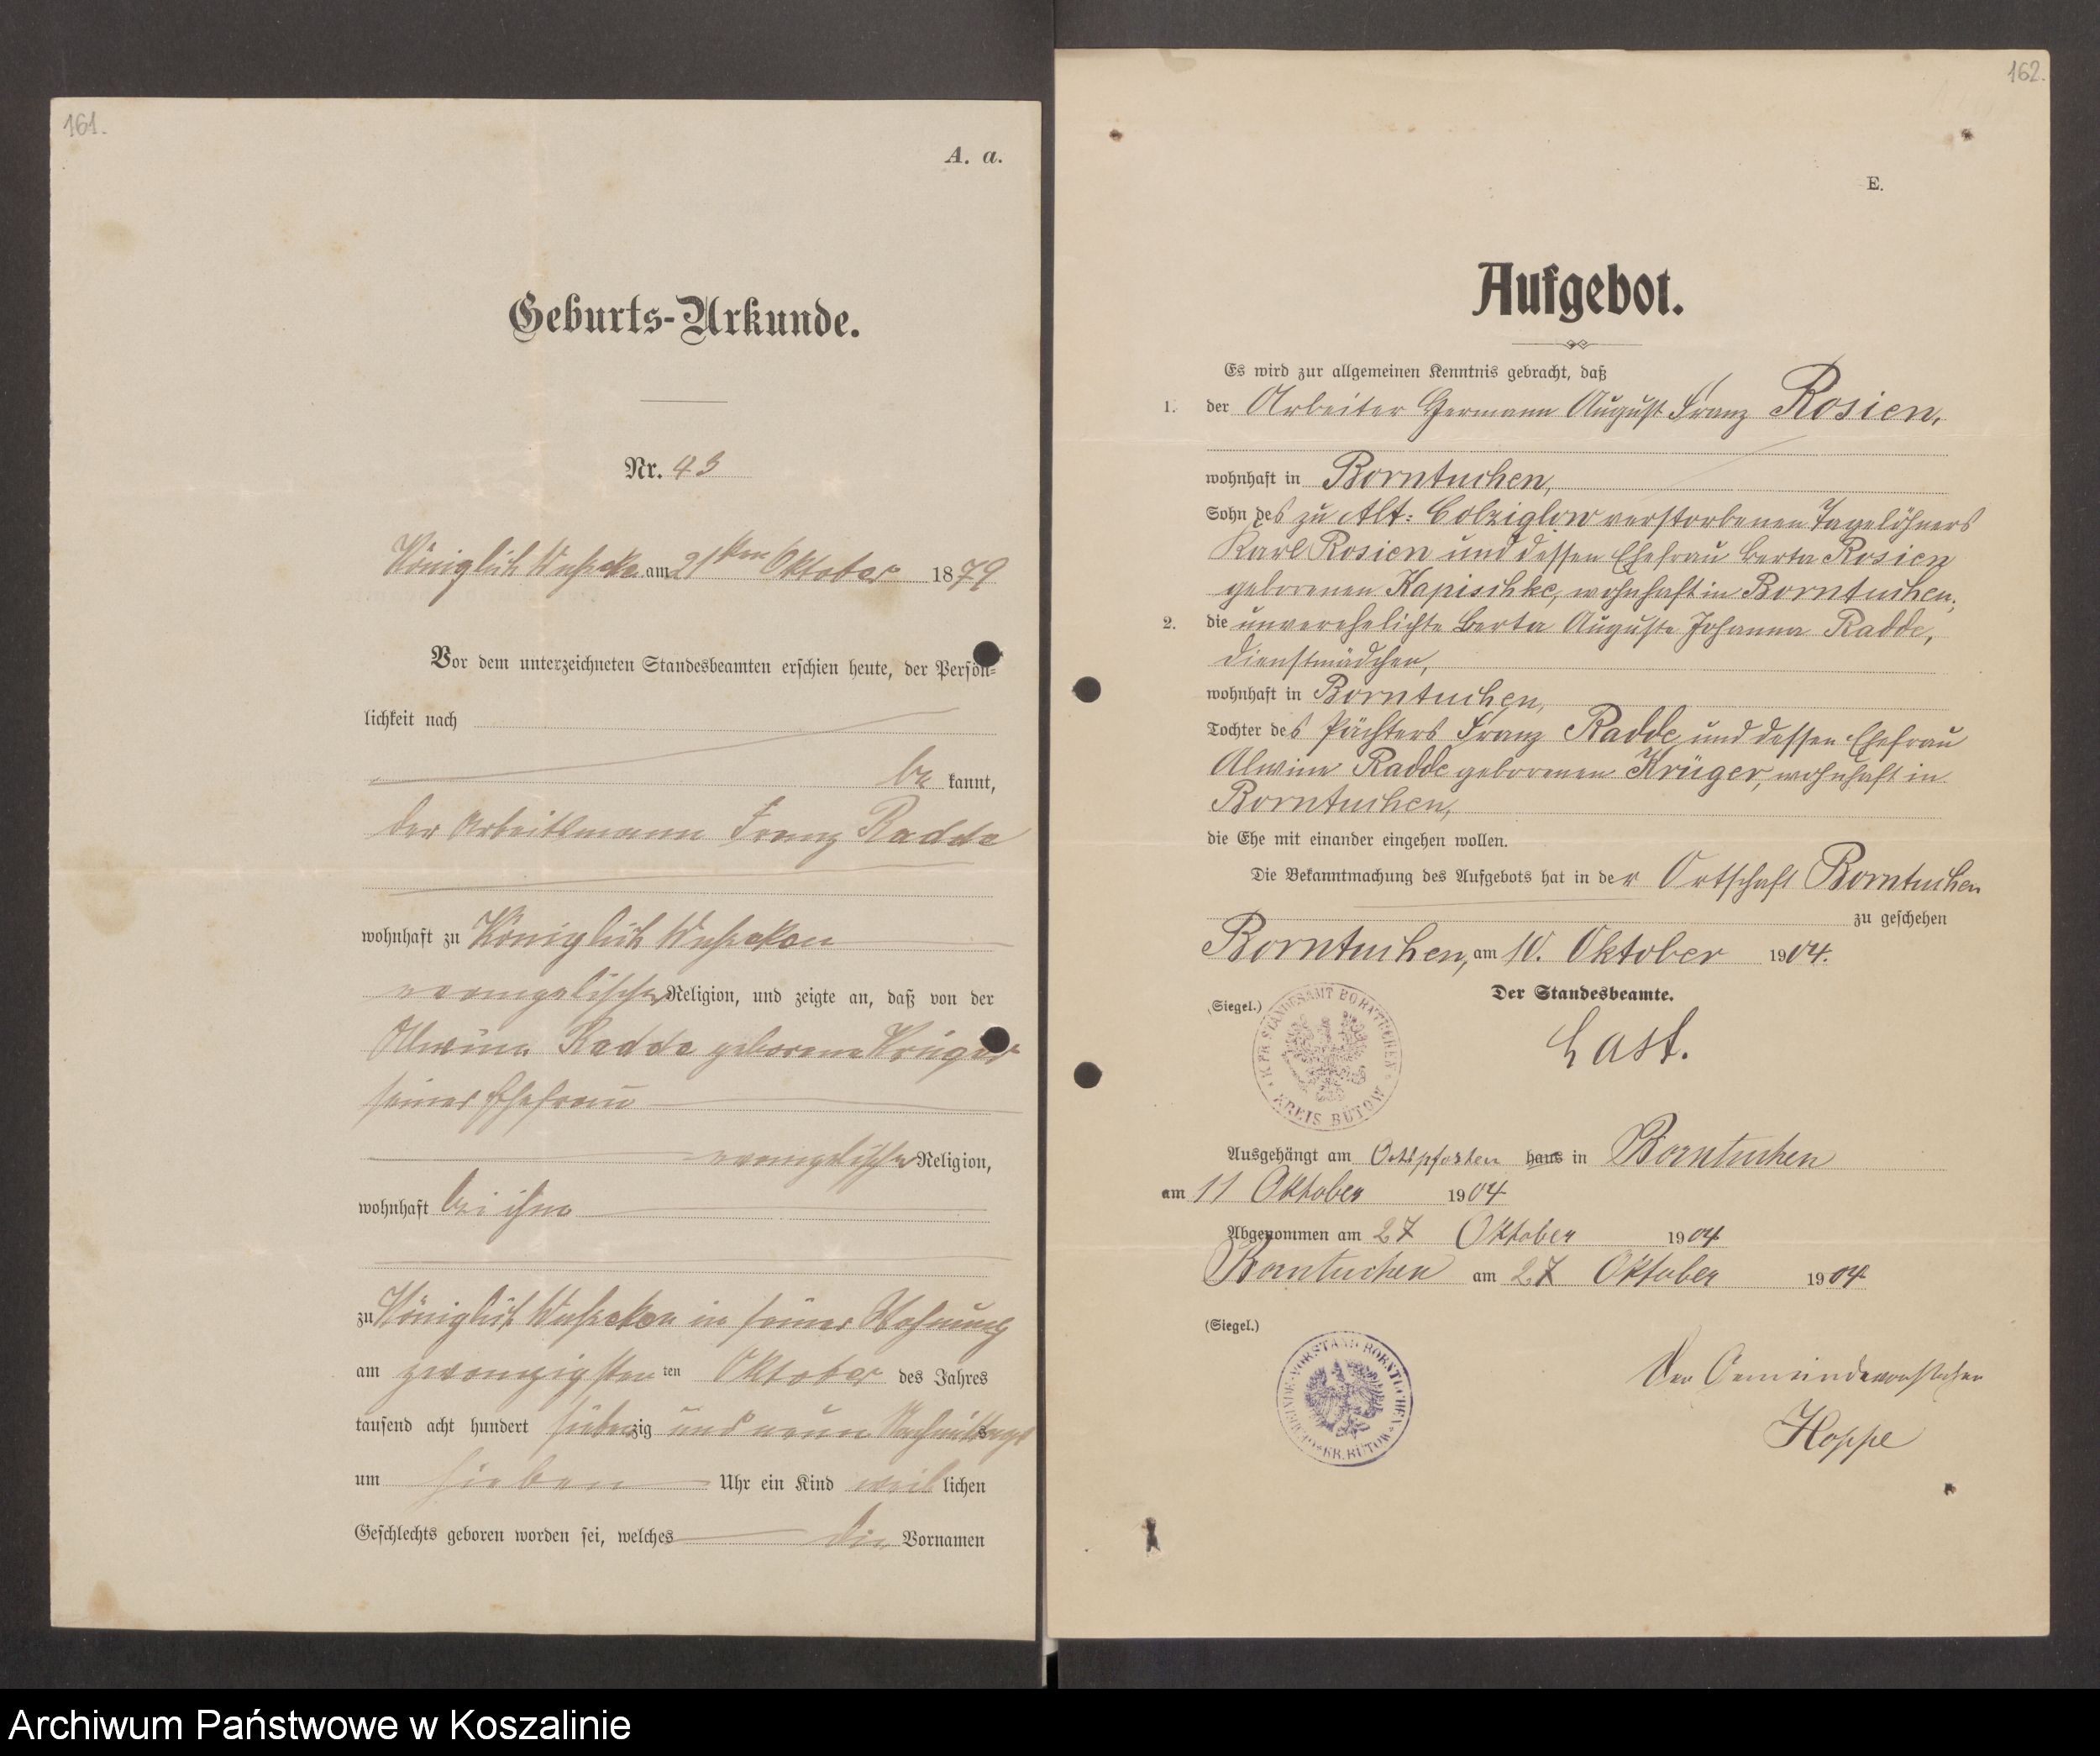 161.
A. a.
Geburts-Urkunde.
Nr. 43
Königlich Wusseken am 21ten Oktober 1879
Vor dem unterzeichneten Standesbeamten erschien heute, der Persön-
lichkeit nach
be kannt,
der Arbeitsmann Franz Radde
wohnhaft zu Königlich Wusseken
evangelischer Religion, und zeigte an, daß von der
Alwine Radde geborene Krüger
seiner Ehefrau
evangelischer Religion,
wohnhaft bei ihm
zu Königlich Wusseken in seiner Wohnung
am zwanzigsten ten Oktober des Jahres
tausend acht hundert siebenzig und neun Nachmittags
um sieben Uhr ein Kind weiblichen
Geschlechts geboren worden sei, welches die Vornamen
162.
E.
Aufgebot.
Es wird zur allgemeinen Kenntnis gebracht, daß
1. der Arbeiter Hermann August Franz Rosien,
wohnhaft in Borntuchen,
Sohn des zu Alt: Colziglow verstorbenen Tagelöhners
Karl Rosien und dessen Ehefrau Berta Rosien
geborenen Kapischke, wohnhaft in Borntuchen,
2. die unverehelichte Berta Auguste Johanna Radde,
Dienstmädchen,
wohnhaft in Borntuchen,
Tochter des Pächters Franz Radde und dessen Ehefrau
Alwine Radde geborenen Krüger, wohnhaft in
Borntuchen,
die Ehe mit einander eingehen wollen.
Die Bekanntmachung des Aufgebots hat in der Ortschaft Borntuchen
zu geschehen
Borntuchen, am 10. Oktober 1904.
Der Standesbeamte.
(Siegel.)
K. PR. STANDESAMT BORNTUCHEN
KREIS BÜTOW
Last.
Ausgehängt am haus in Borntuchen
am 11 Oktober 1904
Abgenommen am 27 Oktober 1904
Borntuchen am 27 Oktober 1904
(Siegel.)
GEMEINDE-VORSTAND BORNTUCHEN
KR. BÜTOW
Der Gemeindevorsteher
Hoppe
Archiwum Państwowe w Koszalinie